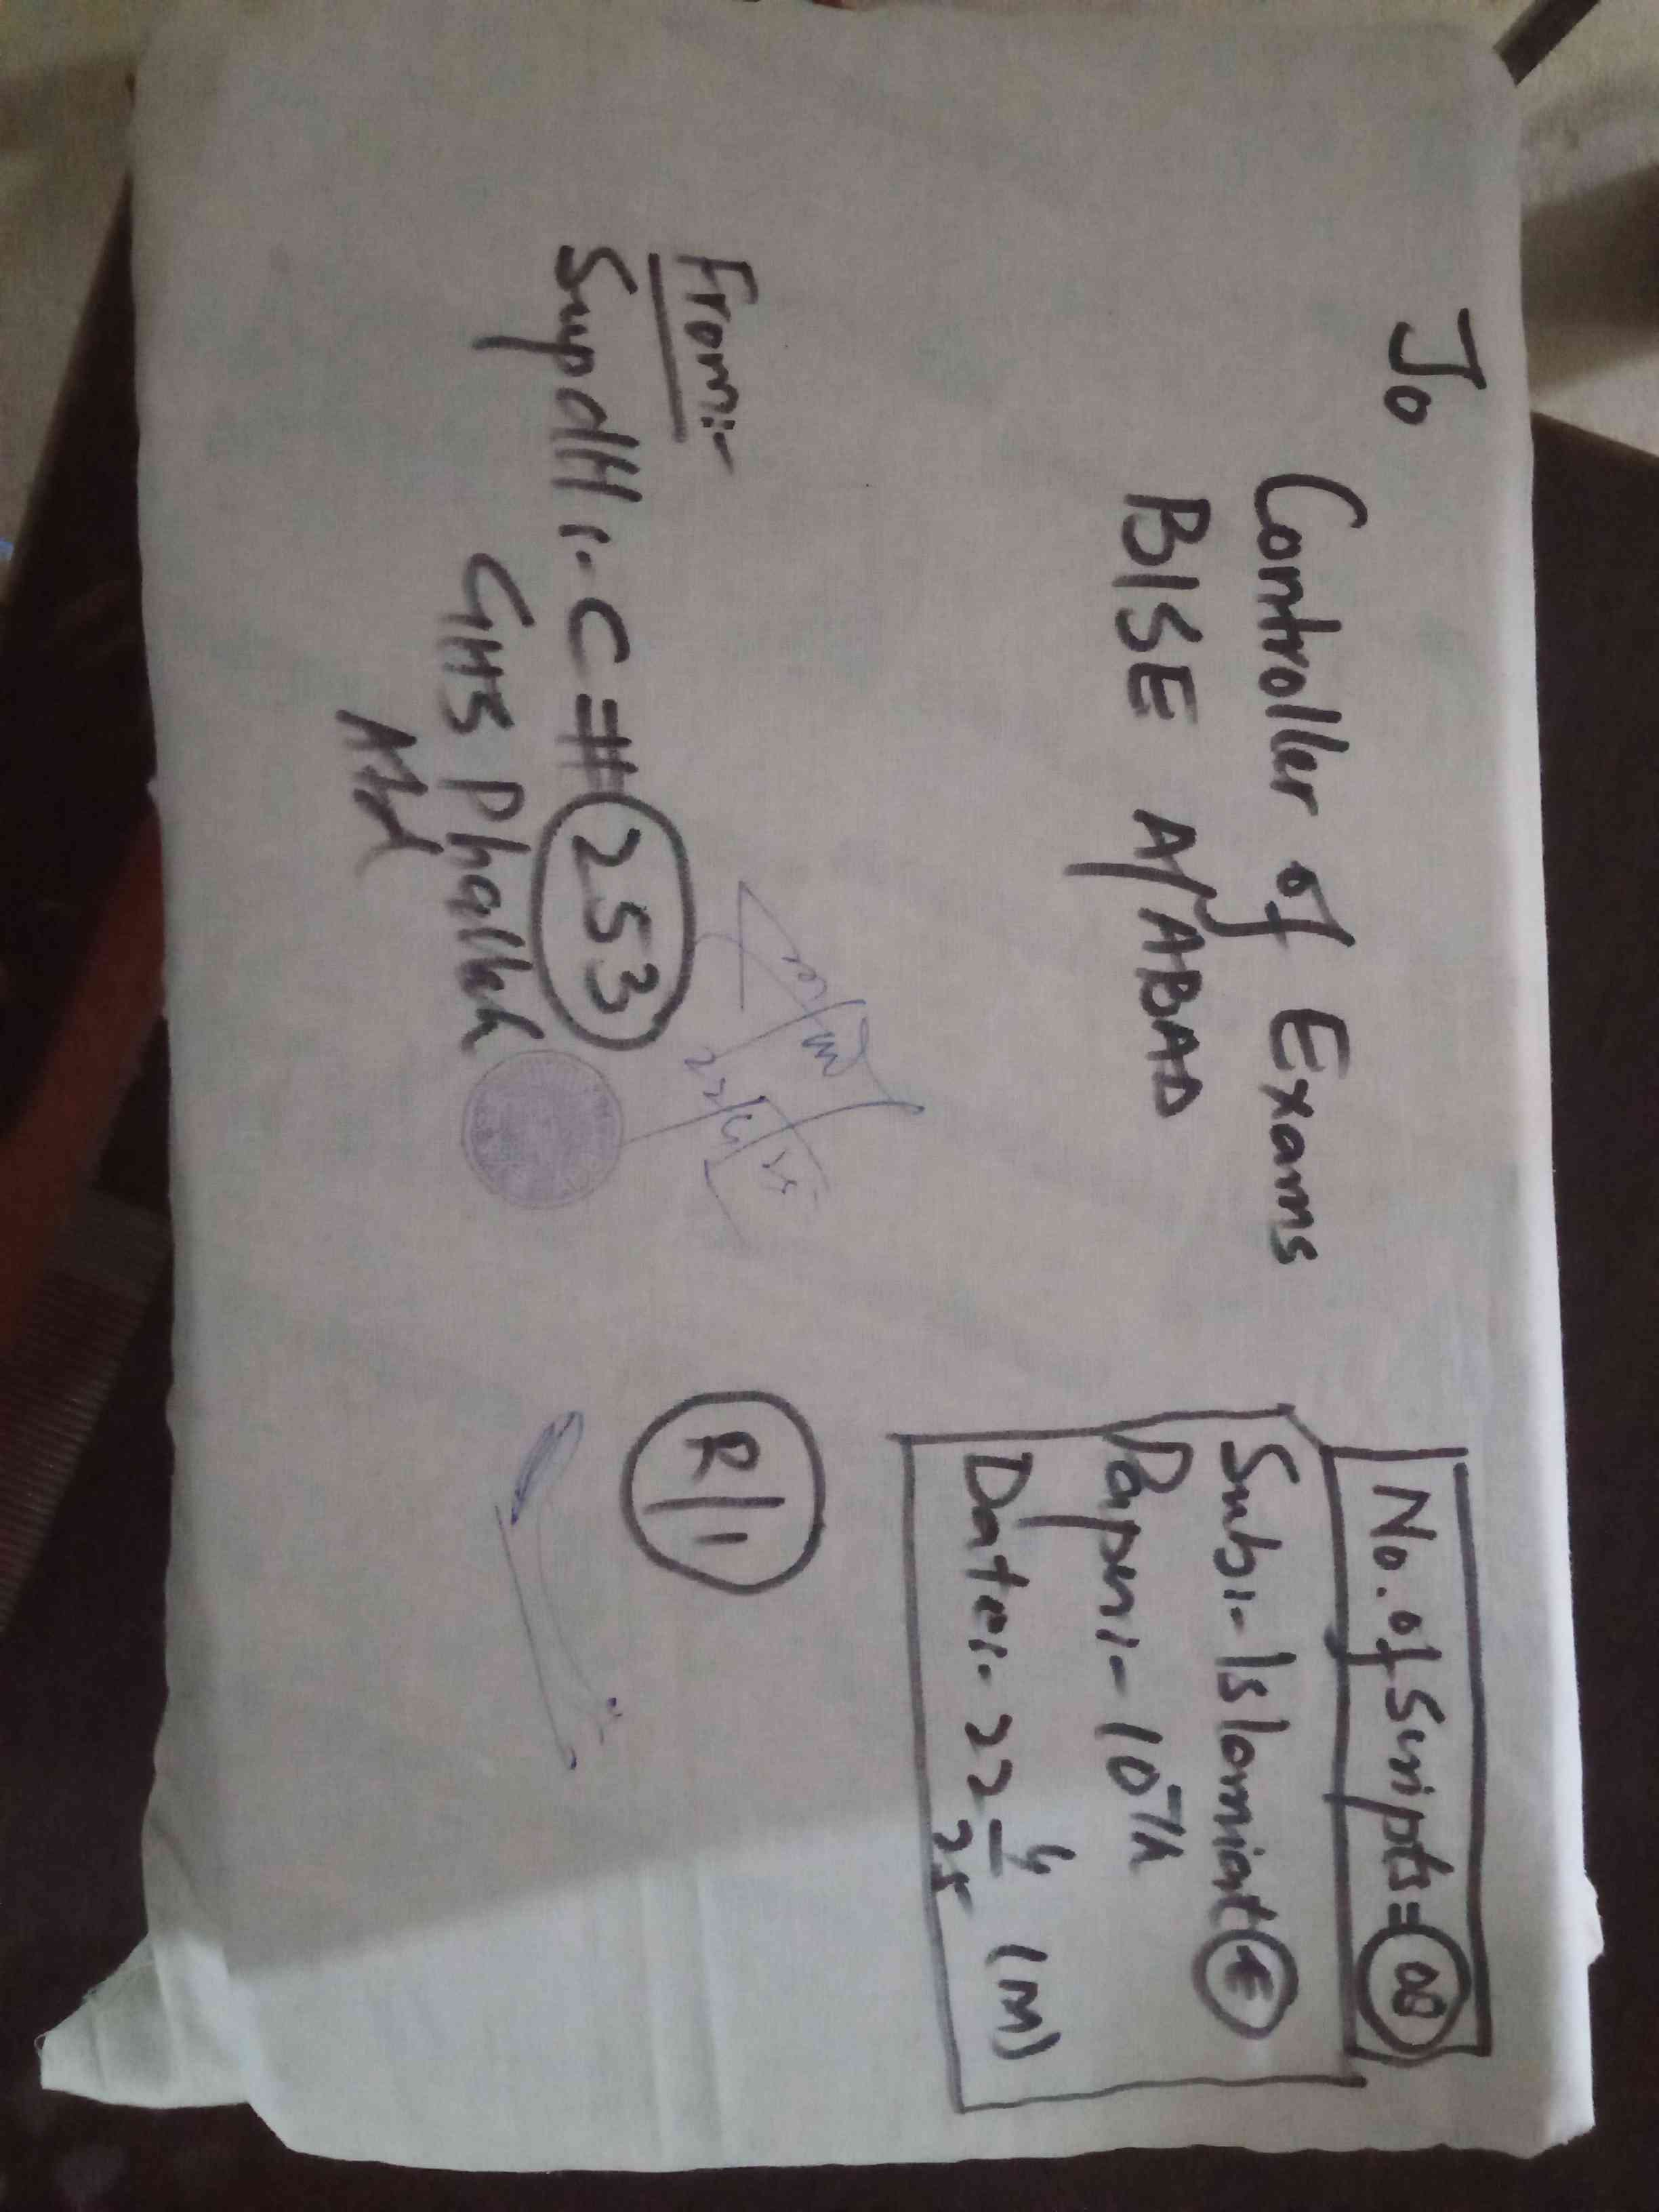 To
Controller of Exams
BISE A/ABAD
No. of Scripts = 08
Sub:- Islamiat (E)
Paper:- 10Th
Date:- 22 4/25 (M)
From:-
Supdtt:- C# 253
GHS Phallah
Atd
R/1
22/4/25